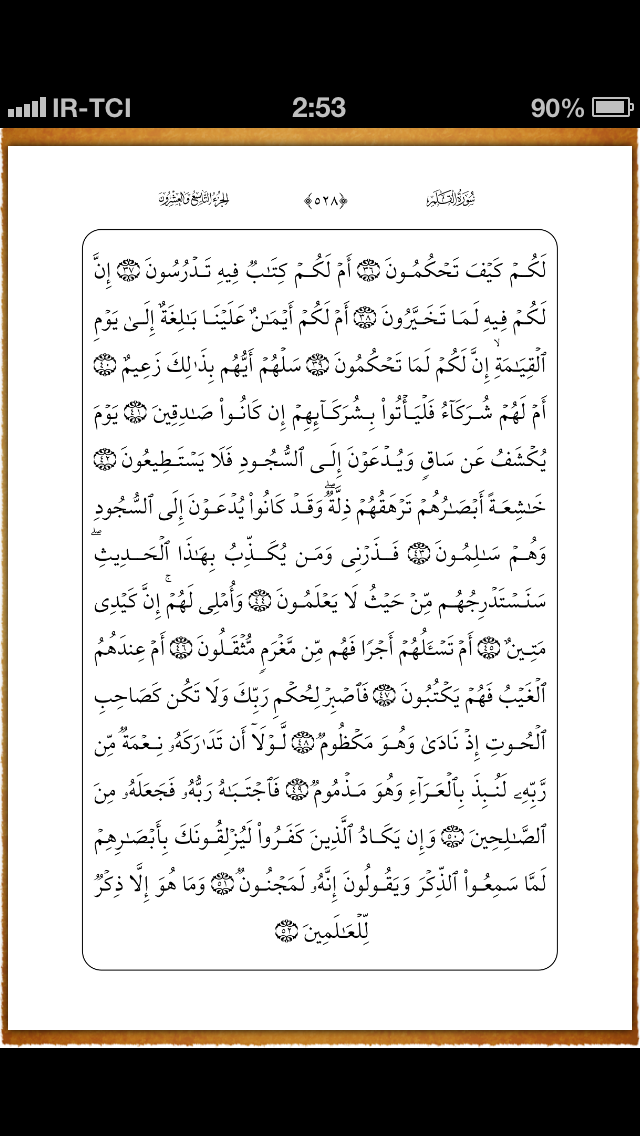 IR-TCI 2:53 90%
سُورَةُ القَلَمِ ﴿٥٢٨﴾ الجُزءُ التَّاسِعُ وَالعِشْرُونَ
لَكُمْ كَيْفَ تَحْكُمُونَ ٣٦ أَمْ لَكُمْ كِتَٰبٌ فِيهِ تَدْرُسُونَ ٣٧ إِنَّ
لَكُمْ فِيهِ لَمَا تَخَيَّرُونَ ٣٨ أَمْ لَكُمْ أَيْمَٰنٌ عَلَيْنَا بَٰلِغَةٌ إِلَىٰ يَوْمِ
ٱلْقِيَٰمَةِ ۙ إِنَّ لَكُمْ لَمَا تَحْكُمُونَ ٣٩ سَلْهُمْ أَيُّهُم بِذَٰلِكَ زَعِيمٌ ٤٠
أَمْ لَهُمْ شُرَكَآءُ فَلْيَأْتُوا۟ بِشُرَكَآئِهِمْ إِن كَانُوا۟ صَٰدِقِينَ ٤١ يَوْمَ
يُكْشَفُ عَن سَاقٍ وَيُدْعَوْنَ إِلَى ٱلسُّجُودِ فَلَا يَسْتَطِيعُونَ ٤٢
خَٰشِعَةً أَبْصَٰرُهُمْ تَرْهَقُهُمْ ذِلَّةٌ ۖ وَقَدْ كَانُوا۟ يُدْعَوْنَ إِلَى ٱلسُّجُودِ
وَهُمْ سَٰلِمُونَ ٤٣ فَذَرْنِى وَمَن يُكَذِّبُ بِهَٰذَا ٱلْحَدِيثِ ۖ
سَنَسْتَدْرِجُهُم مِّنْ حَيْثُ لَا يَعْلَمُونَ ٤٤ وَأُمْلِى لَهُمْ ۚ إِنَّ كَيْدِى
مَتِينٌ ٤٥ أَمْ تَسْـَٔلُهُمْ أَجْرًا فَهُم مِّن مَّغْرَمٍ مُّثْقَلُونَ ٤٦ أَمْ عِندَهُمُ
ٱلْغَيْبُ فَهُمْ يَكْتُبُونَ ٤٧ فَٱصْبِرْ لِحُكْمِ رَبِّكَ وَلَا تَكُن كَصَاحِبِ
ٱلْحُوتِ إِذْ نَادَىٰ وَهُوَ مَكْظُومٌ ٤٨ لَّوْلَآ أَن تَدَٰرَكَهُۥ نِعْمَةٌ مِّن
رَّبِّهِۦ لَنُبِذَ بِٱلْعَرَآءِ وَهُوَ مَذْمُومٌ ٤٩ فَٱجْتَبَٰهُ رَبُّهُۥ فَجَعَلَهُۥ مِنَ
ٱلصَّٰلِحِينَ ٥٠ وَإِن يَكَادُ ٱلَّذِينَ كَفَرُوا۟ لَيُزْلِقُونَكَ بِأَبْصَٰرِهِمْ
لَمَّا سَمِعُوا۟ ٱلذِّكْرَ وَيَقُولُونَ إِنَّهُۥ لَمَجْنُونٌ ٥١ وَمَا هُوَ إِلَّا ذِكْرٌ
لِّلْعَٰلَمِينَ ٥٢